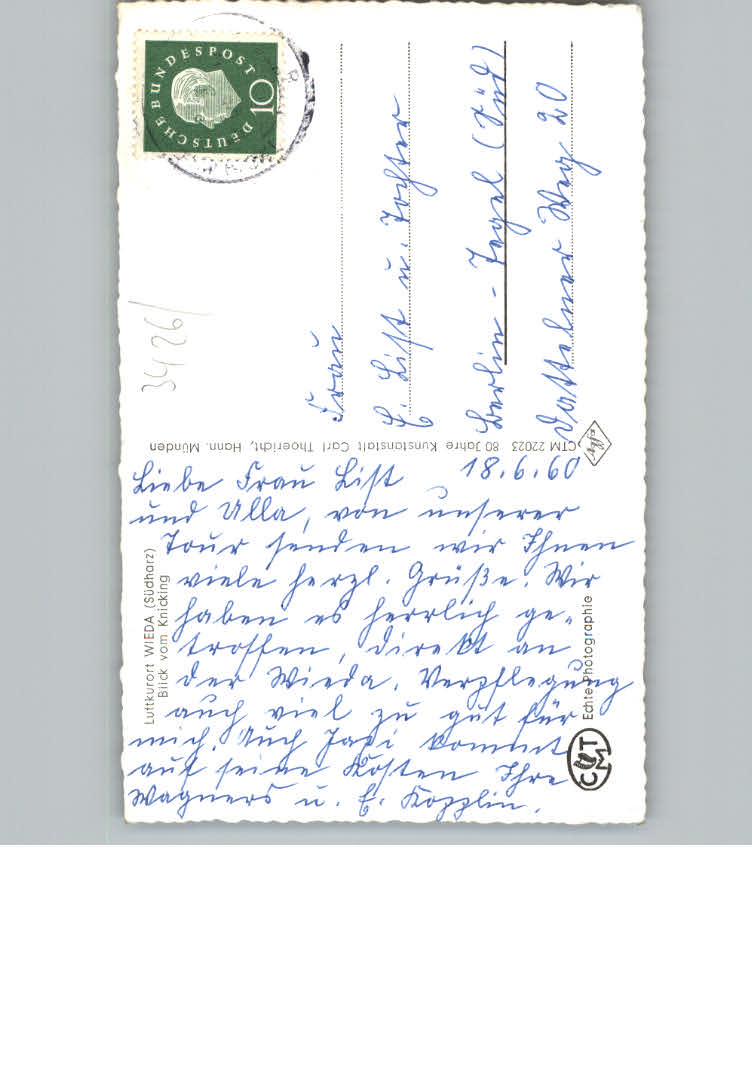 DEUTSCHE BUNDESPOST
10
34/26
Frau
E. List u. Tochter
Berlin - Tegel (Süd)
Dattelner Weg 20
CTM 22023 80 Jahre Kunstanstalt Carl Thoericht, Hann. Münden
Luftkurort WIEDA (Südharz)
Blick vom Knicking
Liebe Frau List 18.9.60
und Ulla, von unserer
Tour senden wir Ihnen
viele herzl. Grüße. Wir
haben es herrlich ge-
troffen, direkt an
der Wieda. Verpflegung
auch viel zu gut für
mich. Auch kommt
auf seine Kosten Ihre
Wagners u. E. Kopplin.
Echte Photographie
CTM